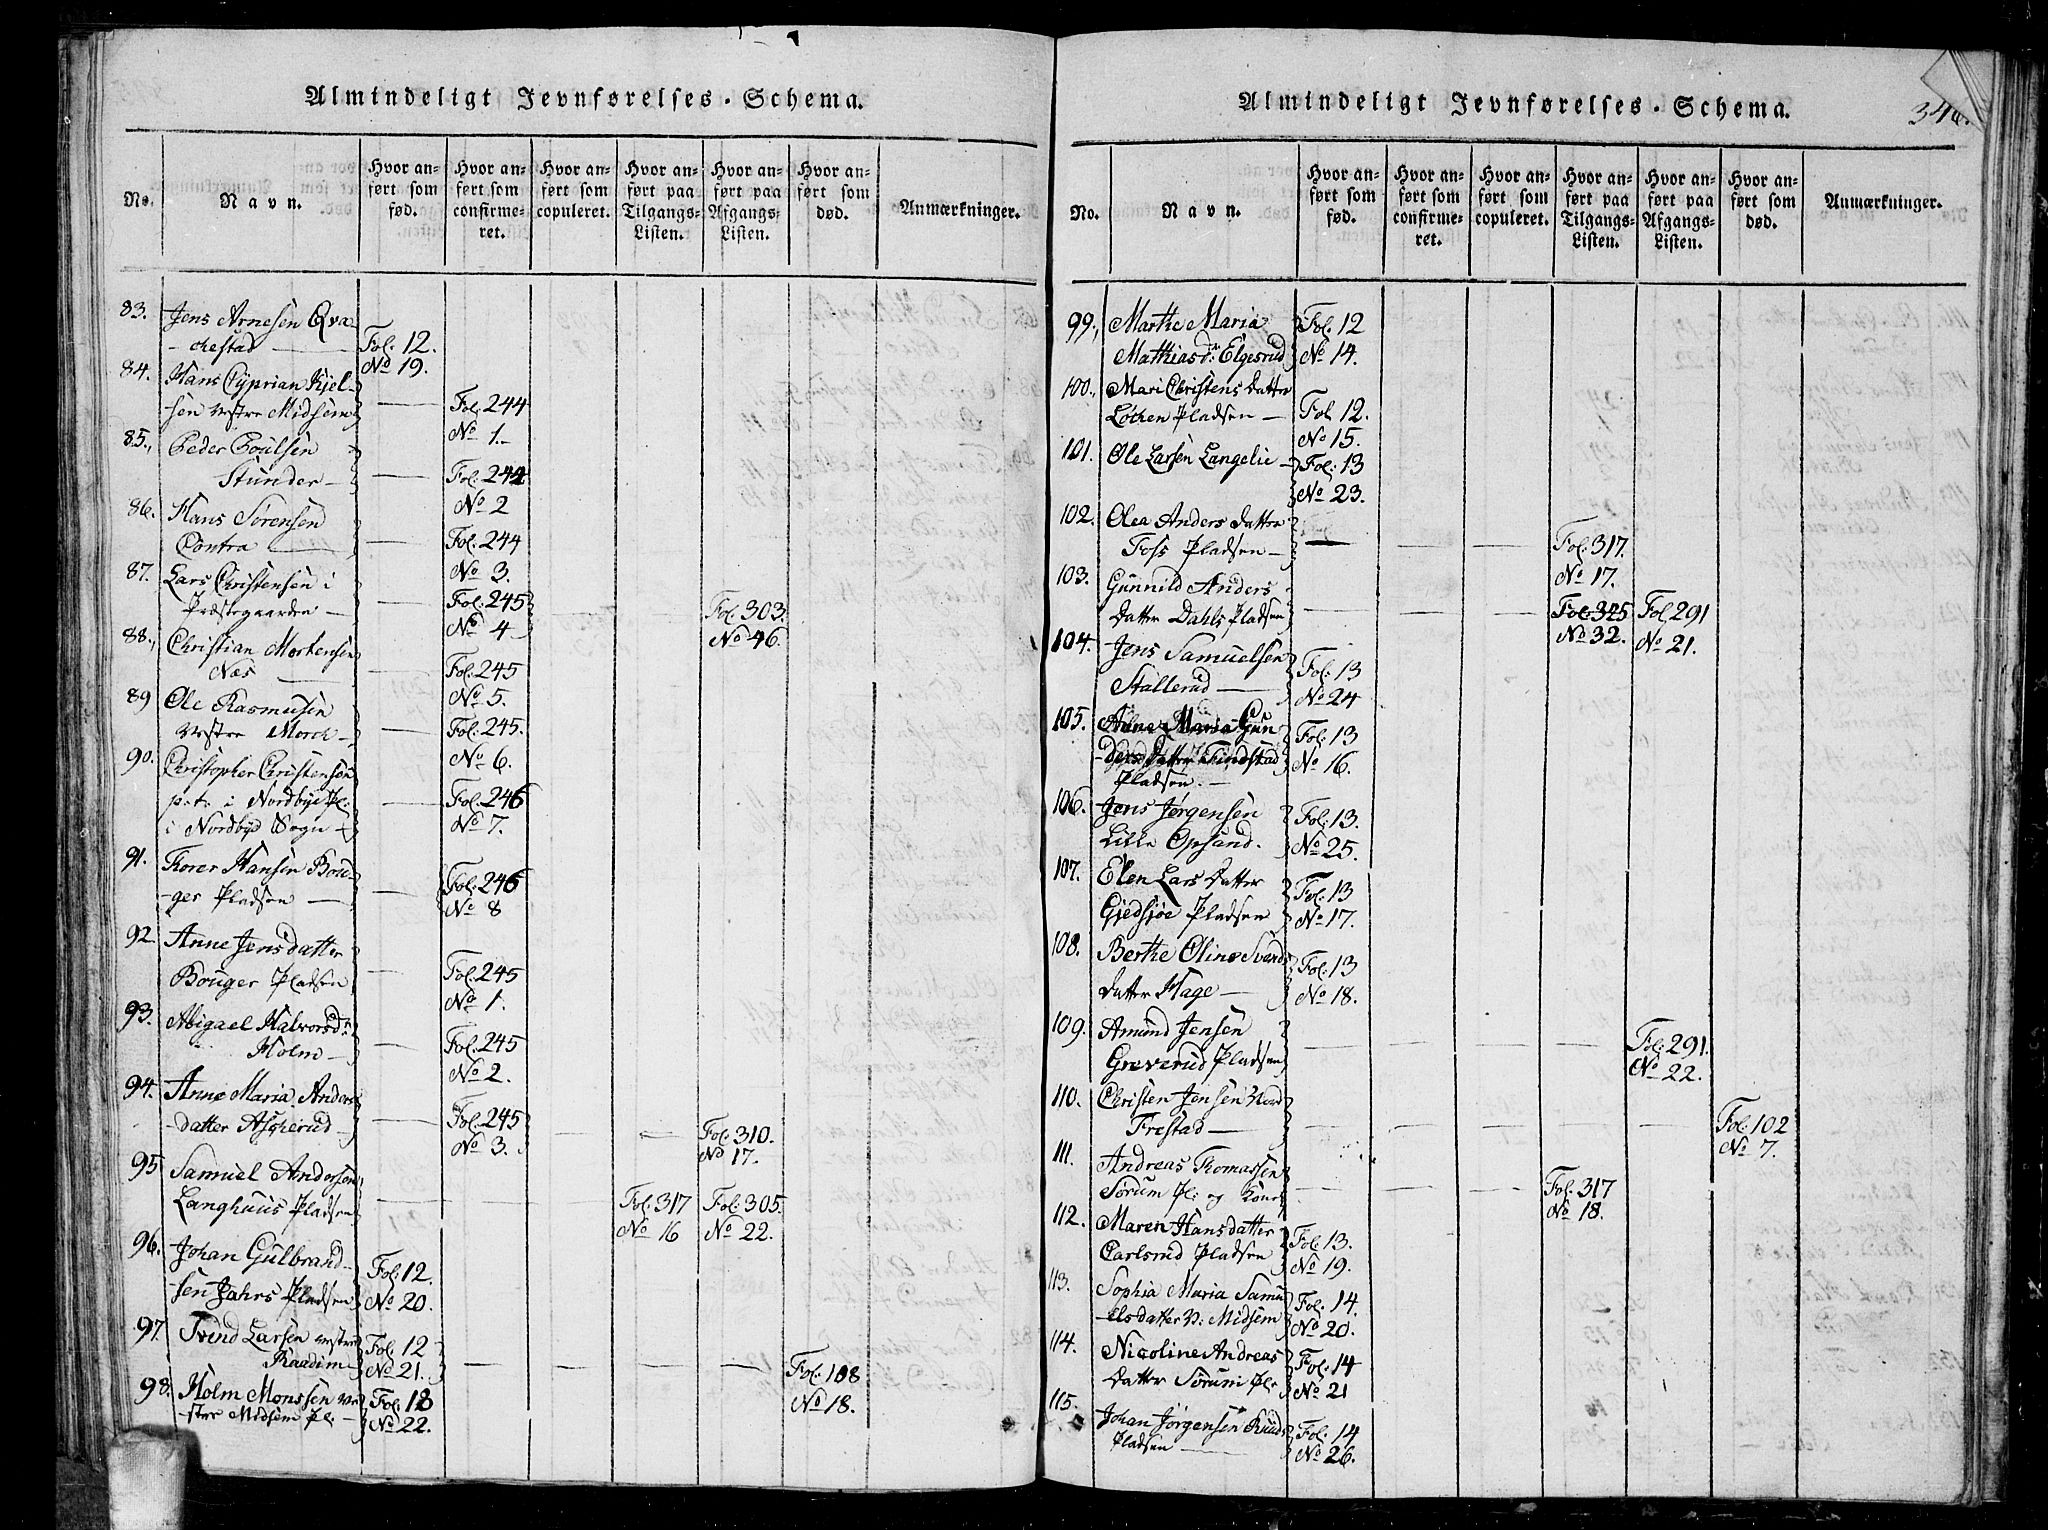 Almindeligt Jevnførelses-Schema.
No.
Navn.
Hvor an-
ført som
fød.
Hvor an-
ført som
confirme-
ret.
Hvor an-
ført som
copuleret.
Hvor an-
ført paa
Tilgangs-
Listen.
Hvor an-
ført paa
Afgangs-
Listen.
Hvor an-
ført som
død.
Anmærkninger.
83. Jens Arnesen Qva-
-kestad — Fol: 12.
No 19.
84. Hans Cyprian Kjel-
sen vestre Midsem — Fol: 244
No 1.
85. Peder Poulsen
Stunder — Fol: 244
No 2
86. Hans Sørensen
Contra — Fol: 244
No 3.
87. Lars Christensen i
Præstegaarden — Fol: 245 Fol: 303.
No 4 No 46.
88. Christian Mortensen
Næs — Fol: 245
No 5.
89 Ole Rasmusen
vestre Morch — Fol: 245.
No 6.
90. Christopher Christensen
p. t. i Nordbye Pl: Fol: 246
i Nordbye Sogn No 7.
91. Thorer Hansen Bou-
-ger Pladsen — Fol: 246
No 8
92. Anne Jensdatter
Bouger Pladsen Fol: 245
No 1.
93. Abigael Halvorsdr:
Holm — Fol: 245
No 2.
94. Anne Maria Anders
-datter Ascherud — Fol: 245 Fol: 310.
No 3. No 17.
95 Samuel Andersen
Langhuus Pladsen Fol: 317 Fol: 305.
No 16 No 22.
96. Johan Gulbrand-
-sen Jahrs Pladsen Fol: 12.
No 20.
97. Svend Larsen vestre Fol: 12
Raadim No 21. Fol: 108
98. Holm Monssen ve Fol: 12 No 18.
-stre Midsem Pl: No 22.
Almindeligt Jevnførelses-Schema.
342.
No.
Navn.
Hvor an-
ført som
fød.
Hvor an-
ført som
confirme-
ret.
Hvor an-
ført som
copuleret.
Hvor an-
ført paa
Tilgangs-
Listen.
Hvor an-
ført paa
Afgangs-
Listen.
Hvor an-
ført som
død.
Anmærkninger.
99. Marthe Maria Fol: 12
Mathiasdr: Elgesrud No 14.
100. Mari Christens Datter
Løchen Pladsen — Fol 12.
No 15.
101. Ole Larsen Langelie — Fol: 13
No 23.
102. Olea Anders Datter
Foss Pladsen — Fol: 317.
No 17.
103. Gunnild Anders
Datter Dahls Pladsen Fol: 325 Fol 291
No 32. No 21.
104. Jens Samuelsen
Stallerud — Fol: 13
No 24
105. Anne Maria Gun Fol: 13
-ders Datter Findstad No 16.
Pladsen. —
106. Jens Jørgensen Fol: 13.
Lille Opsand. No 25.
107. Elen Lars Datter Fol: 13
Gjedsjøe Pladsen No 17.
108. Berthe Oline Svends Fol: 13
Datter Hage — No 18.
109. Amund Jensen
Greverud Pladsen Fol: 291.
No 22.
110. Christen Jensen Nord
Frestad — Fol: 102
No 7.
111. Andreas Thomassen
Sørum Pl: og Kone Fol: 317
No 18.
112. Maren Hansdatter Fol: 13.
Carlsrud Pladsen No 19.
113. Sophia Maria Samu Fol: 14.
elsdatter v: Midsem No 20.
114. Nicoline Andreas Fol: 14
Datter Sørum Pl: No 21
115. Johan Jørgensen Ruuds Fol: 14
Pladsen No 26.